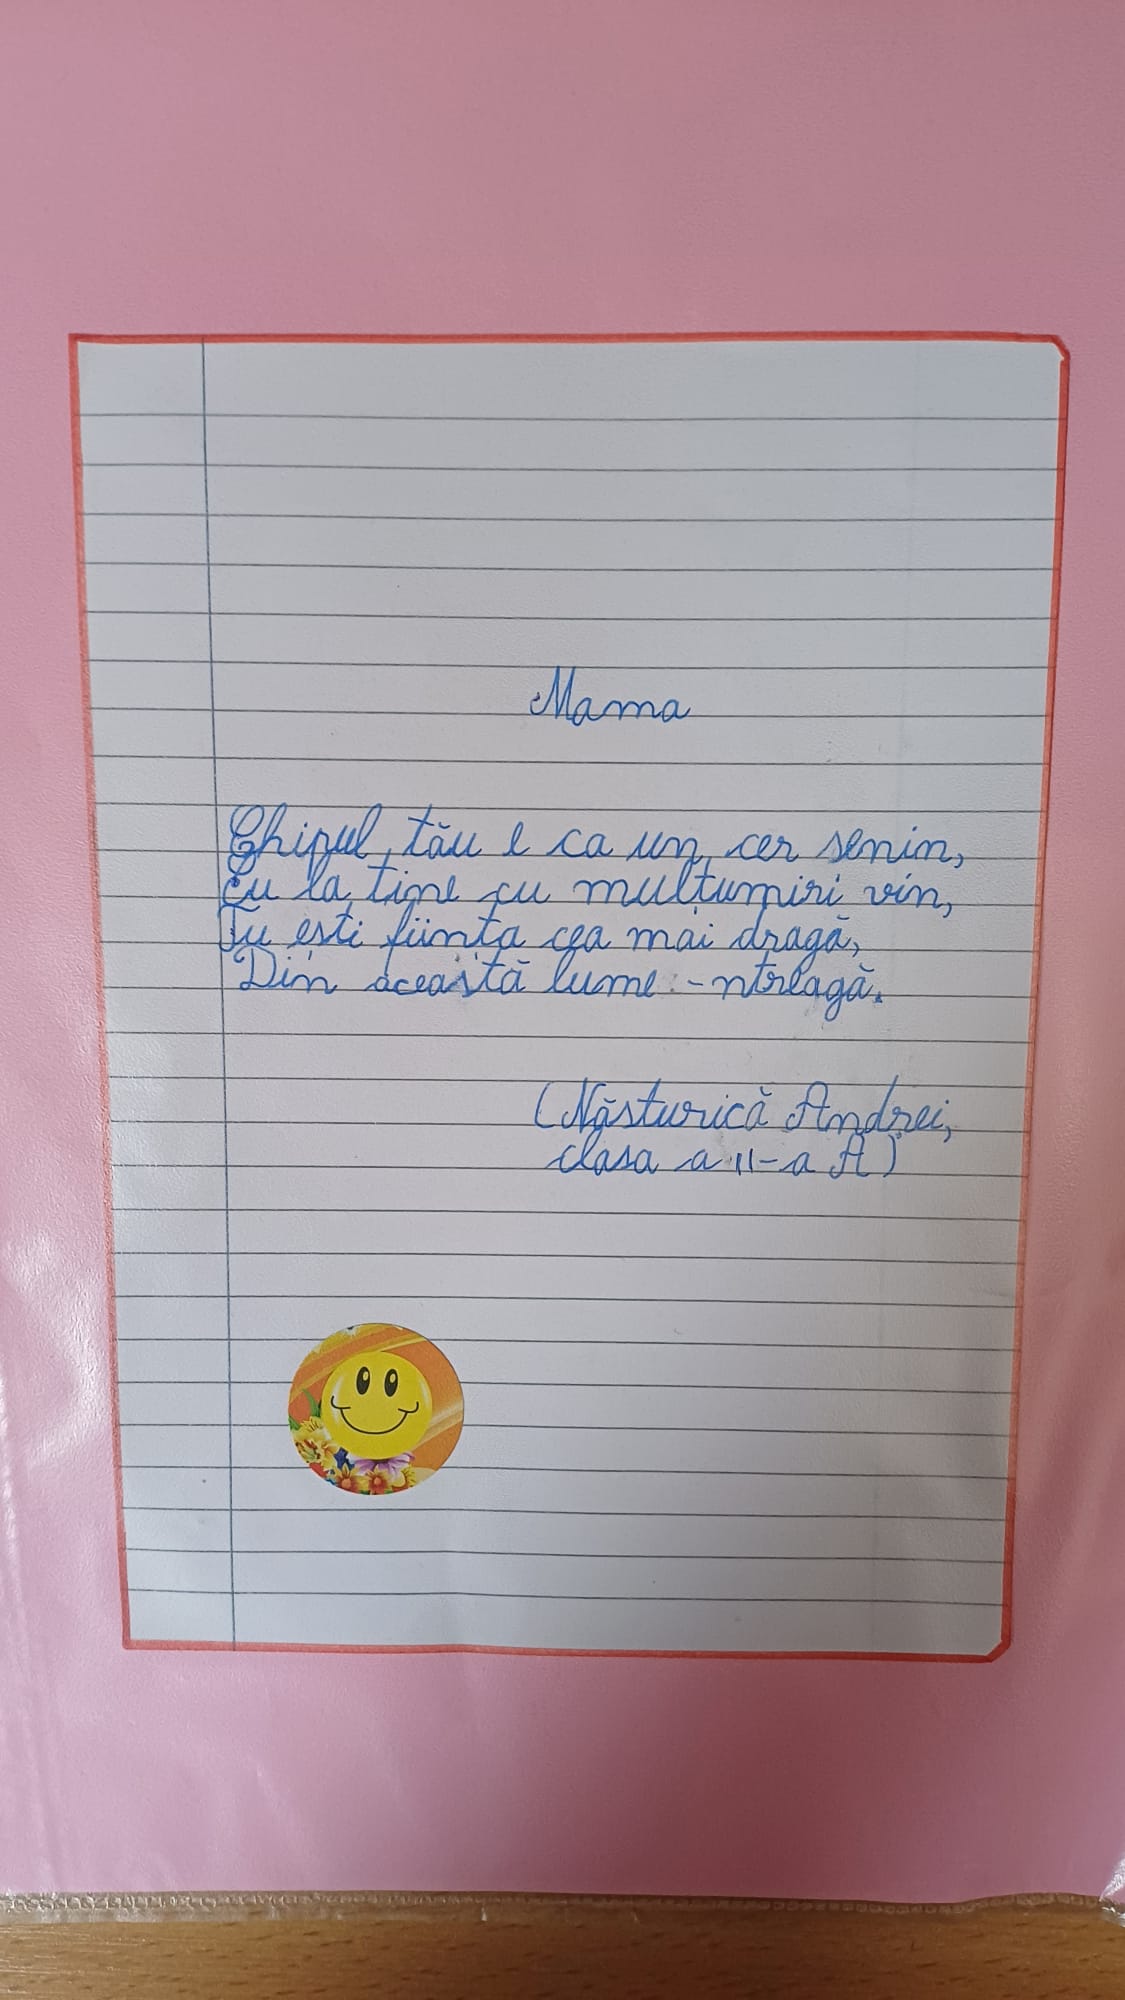 Mama
Chipul tău e ca un cer senin,
Eu la tine cu mulțumiri vin,
Tu ești ființa cea mai dragă,
Din această lume -ntreagă.
(Năsturică Andrei,
clasa a II-a A)